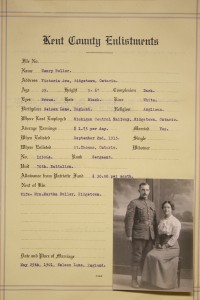 Kent County Enlistments
File No.
Name Henry Feller.
Address Victoria Ave, Ridgetown, Ontario.
Age Height 5' 6" Complexion Dark.
Eyes Brown. Hair Black. Race White.
Birthplace England. Religion Anglican.
Where Last Employed Michigan Central Railway, Ridgetown, Ontario.
Average Earnings $ 1.75 per day. Married Yes.
When Enlisted September 2nd, 1915. Single
Where Enlisted St.Thomas, Ontario. Widower
No. Rank Sergeant.
Unit Battalion.
Allowance from Patriotic Fund $ 20.00 per month.
Next of Kin
Wife- Mrs.Martha Feller, Ridgetown.
Date and Place of Marriage
May 25th, England.